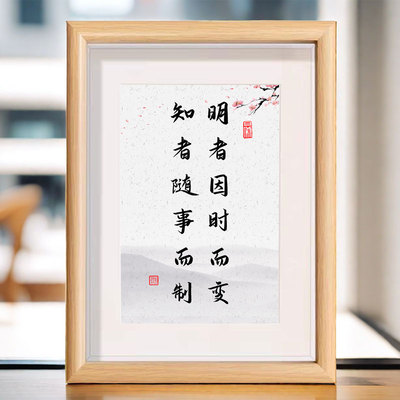 明者因时而变
知者随事而制